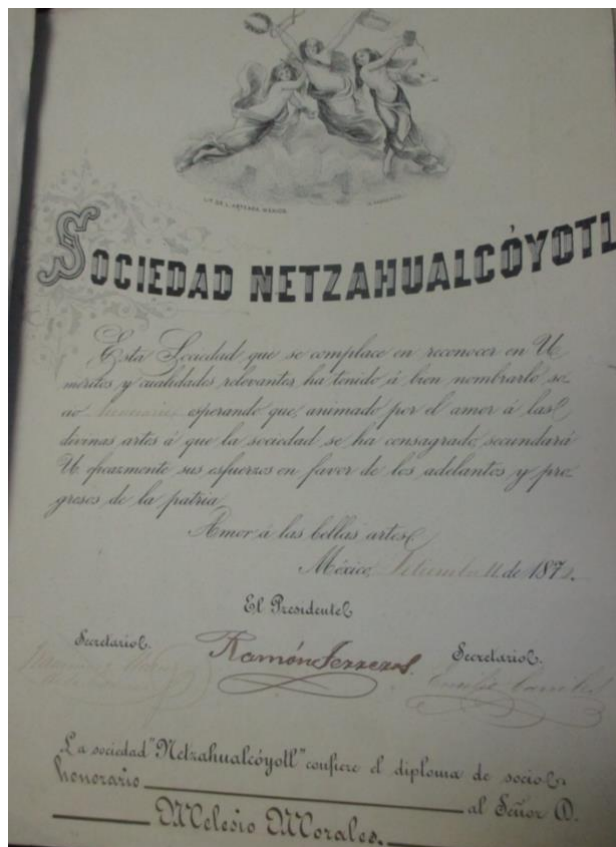 LIT DE L. ORTEGA. MEXICO.
SOCIEDAD NETZAHUALCÓYOTL
Esta Sociedad que se complace en reconocer en U.
méritos y cualidades relevantes, ha tenido á bien nombrarle so-
cio honorario esperando que, animado por el amor á las
divinas artes á que la sociedad se ha consagrado, secundará
U. eficazmente sus esfuerzos en favor de los adelantos y pro-
gresos de la patria.
Amor á las bellas artes.
México, Setiembre 11 de 1872.
El Presidente
Secretario.
Ramón Terreros.
Secretario.
La sociedad "Netzahualcóyotl" confiere el diploma de socio
honorario
al Señor D.
Melesio Morales.